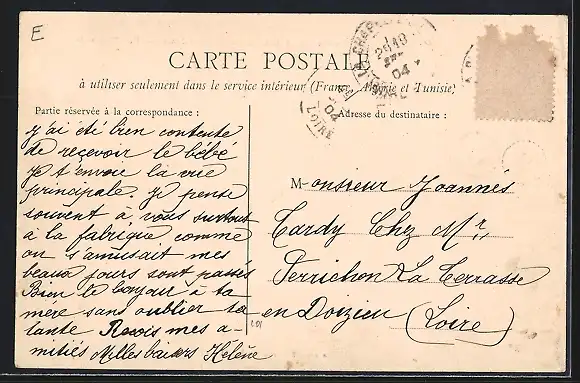 E
CARTE POSTALE
à utiliser seulement dans le service intérieur (France, Algérie et Tunisie)
Partie réservée à la correspondance :
j'ai été bien contente
de reçevoir le bébé
Je t'envoie la vue
principale. Je pense
souvent à vous surtout
à la fabrique comme
on s'amusait mes
beaux jours sont passés
Bien le bonjour à ta
mère sans oublier ta
tante Reçois mes a-
mitiés Milles baisers Hélène
Adresse du destinataire :
Monsieur Joannès
Tardy Chez Mr
Perrichon La Terrasse
en Doizieu (Loire)
04
LOIRE